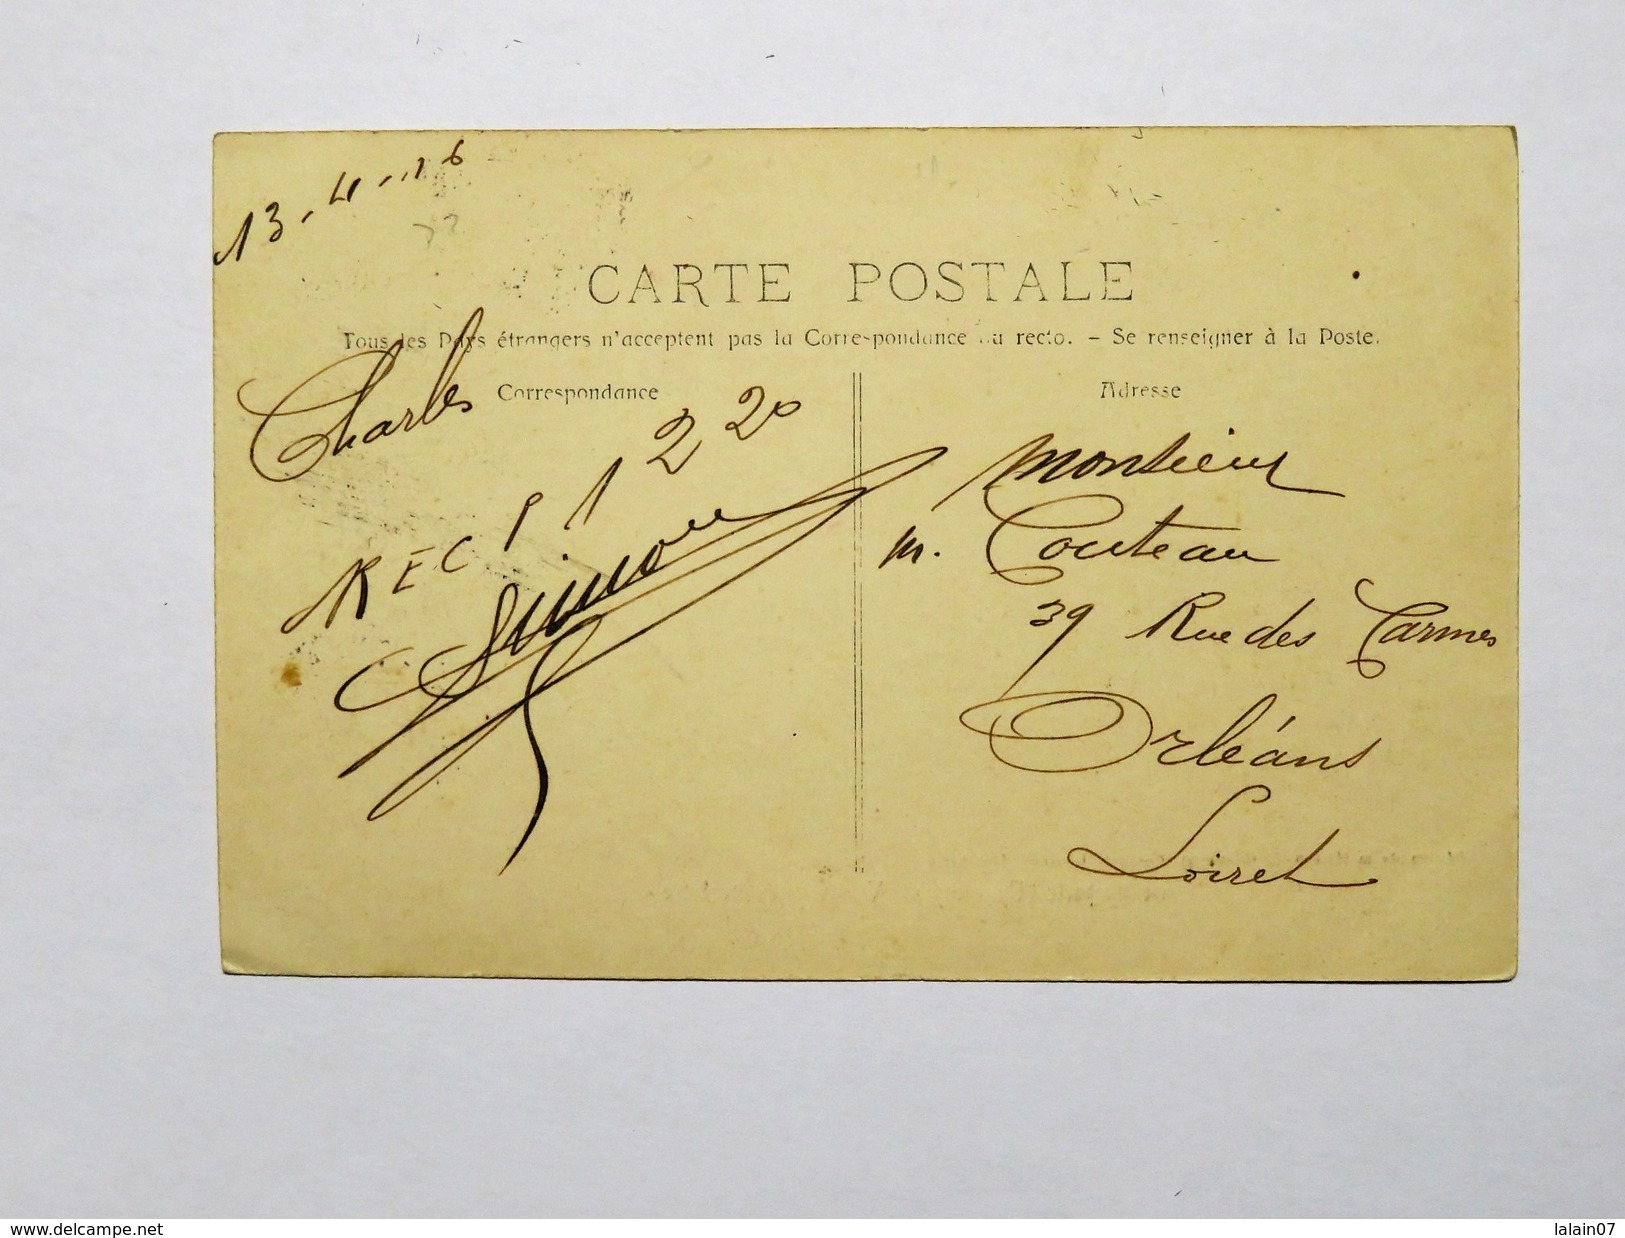 13-4-..16
CARTE POSTALE
Tous les Pays étrangers n'acceptent pas la Correspondance au recto. – Se renseigner à la Poste.
Correspondance
Charles
REC P 1 2 20
Adresse
Monsieur
M. Couteau
39 Rue des Carmes
Orléans
Loiret
www.delcampe.net
lalain07